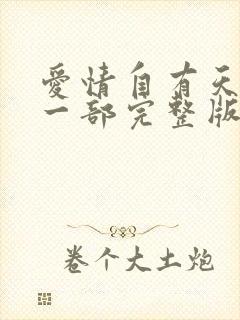 爱情自有天
一部完整版
卷个大土炮